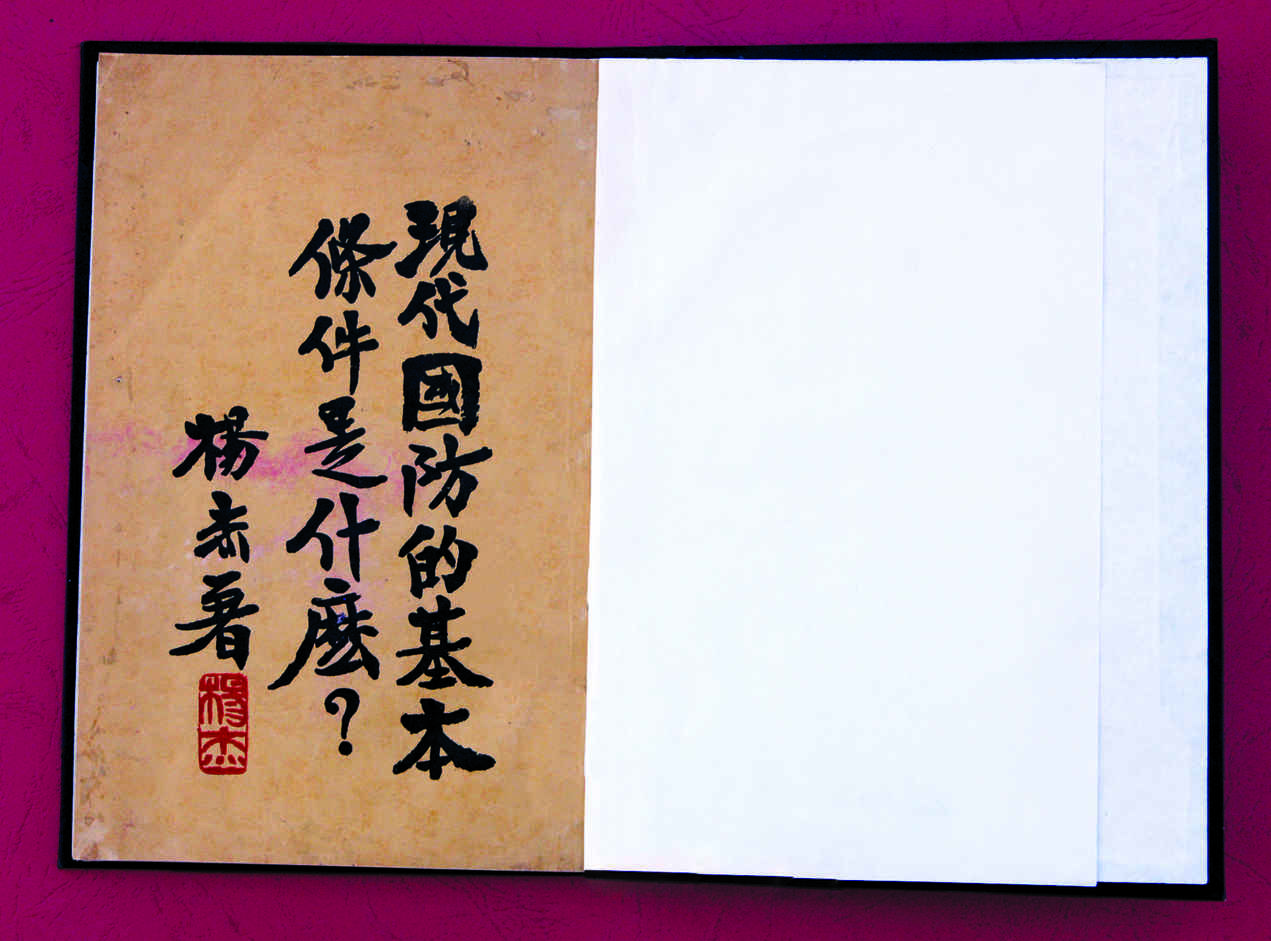 現代國防的基本
條件是什麽？
楊杰著
楊杰